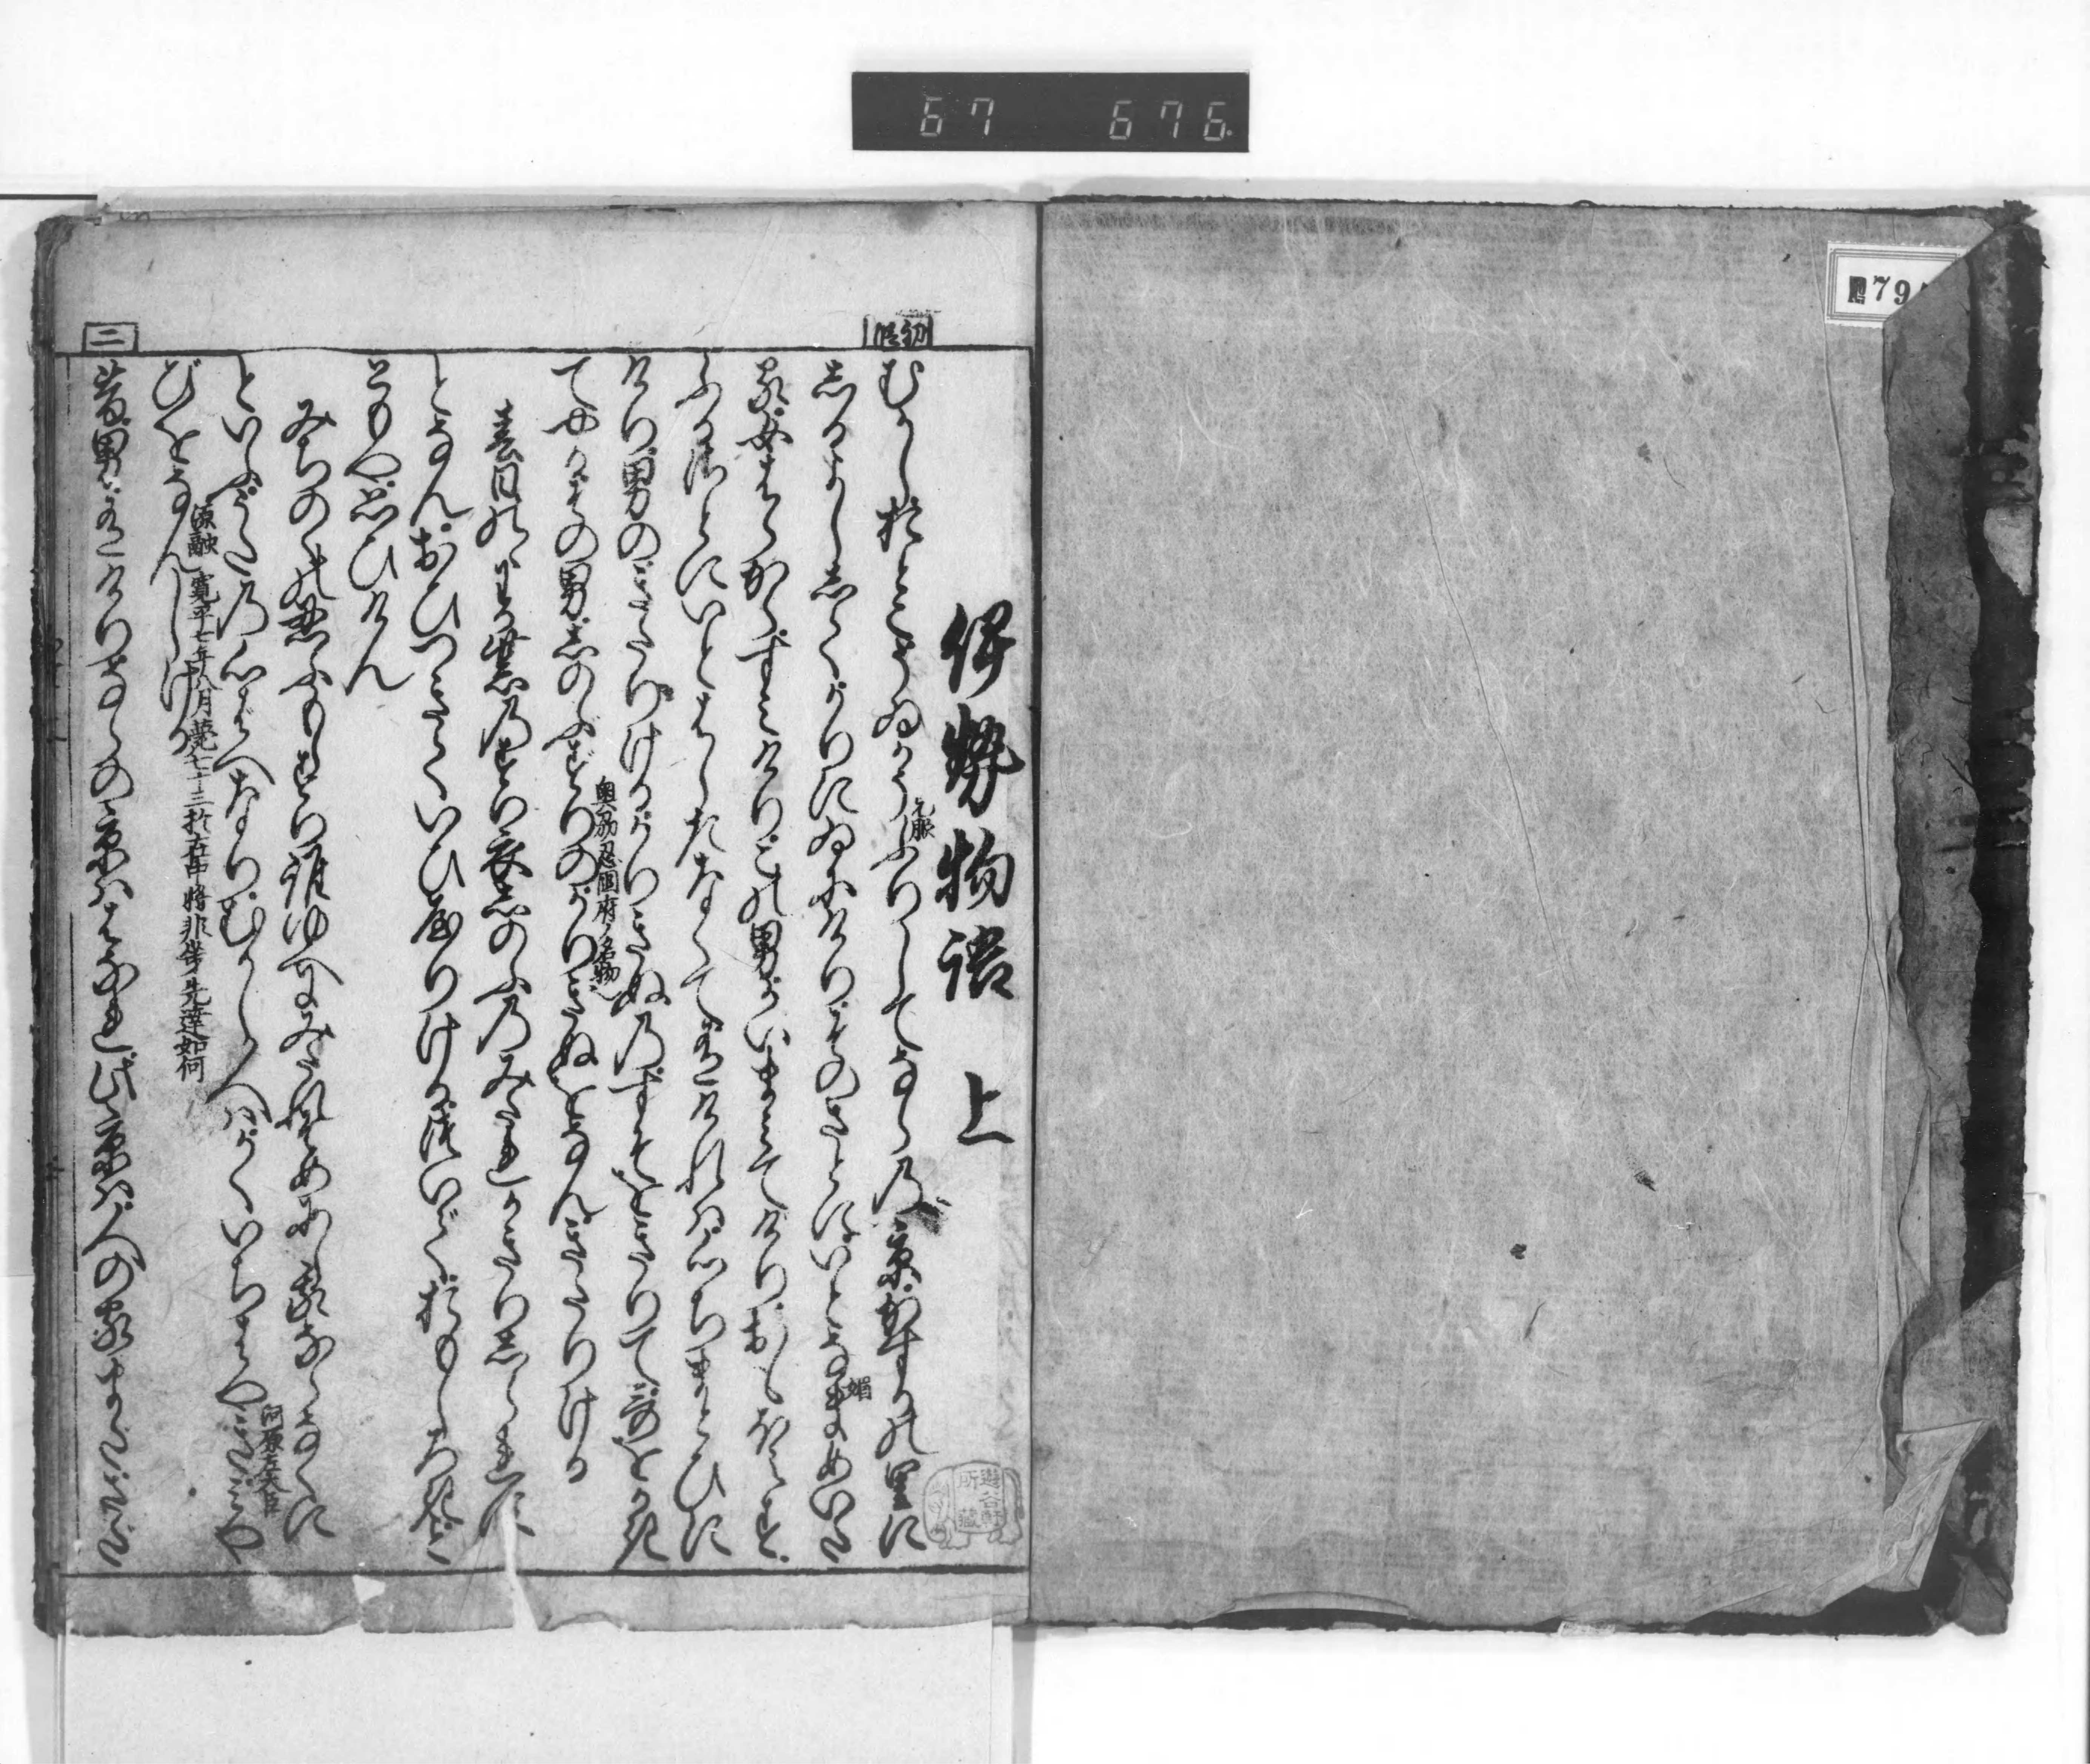 67 676
伊勢物語 上
初段
むかしおとこうゐかうふりしてならの京かすかの里に
元服
しるよししてかりにいにけりそのさとにいとなまめいた
媚
る女はらからすみけりこの男かいまみてけりおもほえす
ふるさとにいとはしたなくて有けれは心ちまとひに
けり男のきたりけるかりきぬのすそをきりて哥をかき
奥州忍国府ノ名物
てやるその男しのふすりのかりきぬをなんきたりける
春日野のわか紫のすり衣しのふのみたれかきりしられす
となんおひつきていひやりけるついておもしろきこと
ともや思ひけん
みちのくの忍ふもちすり誰ゆへにみたれそめにし我ならなくに
河原左大臣
といふうたの心はへなりむかし人はかくいちはやきみや
源融 寛平七年八月薨七十三
びをなんしける
二
昔男有けりならの京ははなれ此京は人の家またさた
遊谷軒所蔵